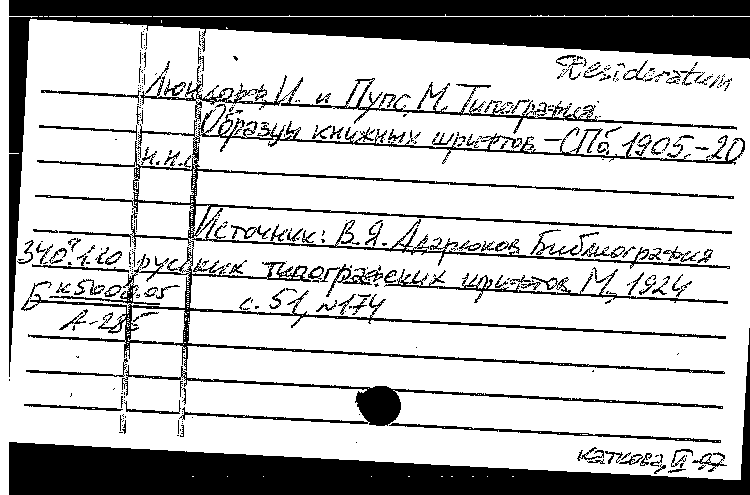 Desideratum
Люндорф, И. и Пупс, М. Типография.
Образцы книжных шрифтов. - СПб, 1905. - 20
н.н.с
Источник: В.Я. Адарюков Библиография
русских типографских шрифтов М., 1924
с. 51, №174
340.120
Б
А-285
Каткова, VI-97